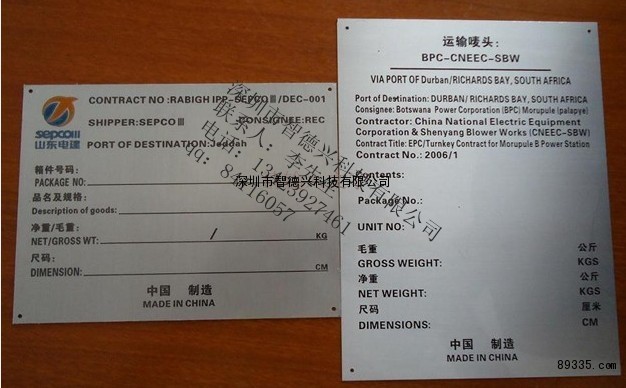 CONTRACT NO: RABIGH IPP-SEPCOⅢ/DEC-001
SHIPPER:SEPCOⅢ CONSIGNEE:REC
SEPCOⅢ
山东电建
PORT OF DESTINATION:Jeddah
箱件号码:
PACKAGE NO:
品名及规格:
Description of goods:
净重/毛重:
NET/GROSS WT: / KG
尺码:
DIMENSION: CM
中国 制造
MADE IN CHINA
运输唛头:
BPC-CNEEC-SBW
VIA PORT OF Durban/RICHARDS BAY, SOUTH AFRICA
Port of Destination: DURBAN/ RICHARDS BAY, SOUTH AFRICA
Consignee: Botswana Power Corporation (BPC) Morupule (palapye)
Contractor: China National Electric Equipment
Corporation & Shenyang Blower Works (CNEEC-SBW)
Contract Title: EPC/Turnkey Contract for Morupule B Power Station
Contract No.: 2006/1
Contents:
Package No.:
UNIT NO:
毛重 公斤
GROSS WEIGHT: KGS
净重 公斤
NET WEIGHT: KGS
尺码 厘米
DIMENSIONS: CM
中国 制造
MADE IN CHINA
深圳市智德兴科技有限公司
联系人:李先生
电话:
qq:
深圳市智德兴科技有限公司
89335.com